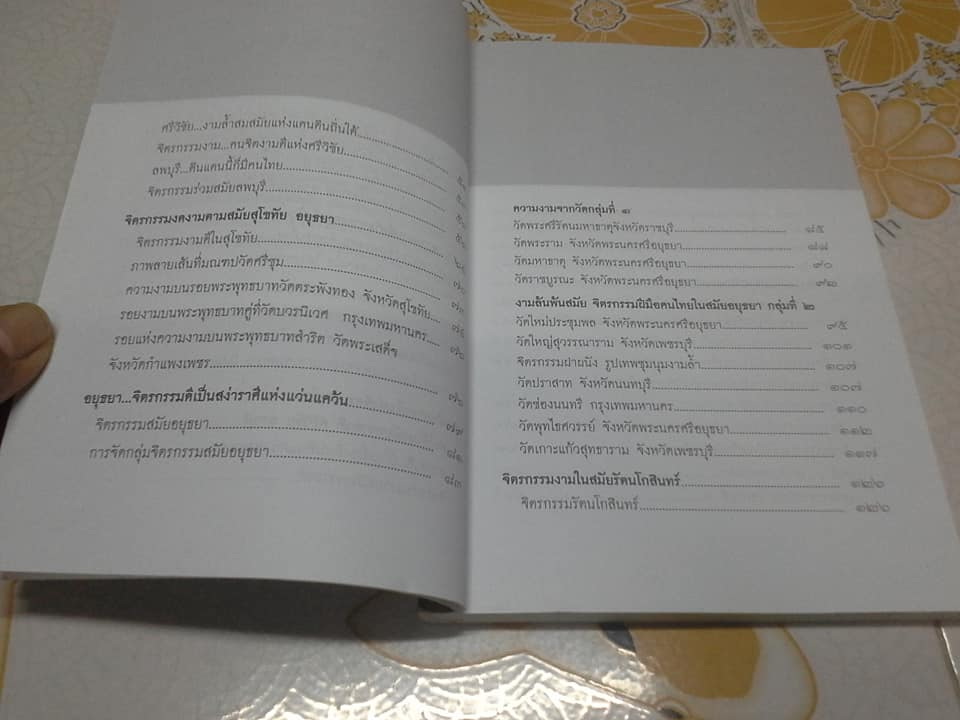 ศรีวิชัย...งามล้ำสมสมัยแห่งแดนดินถิ่นใต้
จิตรกรรมงาม...คนจิตงามดีแห่งศรีวิชัย
ลพบุรี...ดินแดนนี้ก็มีคนไทย
จิตรกรรมร่วมสมัยลพบุรี
จิตรกรรมงดงามตามสมัยสุโขทัย อยุธยา
จิตรกรรมงามดีในสุโขทัย
ภาพลายเส้นที่มณฑปวัดศรีชุม
ความงามบนรอยพระพุทธบาทวัดตระพังทอง จังหวัดสุโขทัย
รอยงามบนพระพุทธบาทคู่ที่วัดบวรนิเวศ กรุงเทพมหานคร
รอยแห่งความงามบนพระพุทธบาทสำริด วัดพระเสด็จ
จังหวัดกำแพงเพชร
อยุธยา...จิตรกรรมดีเป็นสง่าราศีแห่งแว่นแคว้น
จิตรกรรมสมัยอยุธยา ๗๙
การจัดกลุ่มจิตรกรรมสมัยอยุธยา ๘๓
ความงามจากวัดกลุ่มที่ ๑
วัดพระศรีรัตนมหาธาตุจังหวัดราชบุรี ๘๕
วัดพระราม จังหวัดพระนครศรีอยุธยา ๘๗
วัดมหาธาตุ จังหวัดพระนครศรีอยุธยา ๙๐
วัดราชบูรณะ จังหวัดพระนครศรีอยุธยา ๙๒
งามสันพันสมัย จิตรกรรมฝีมือคนไทยในสมัยอยุธยา กลุ่มที่ ๒
วัดใหม่ประชุมพล จังหวัดพระนครศรีอยุธยา ๙๕
วัดใหญ่สุวรรณาราม จังหวัดเพชรบุรี ๑๐๑
จิตรกรรมฝาผนัง รูปเทพชุมนุมงามล้ำ ๑๐๗
วัดปราสาท จังหวัดนนทบุรี ๑๐๗
วัดช่องนนทรี กรุงเทพมหานคร ๑๑๐
วัดพุทไธศวรรย์ จังหวัดพระนครศรีอยุธยา ๑๑๒
วัดเกาะแก้วสุทธาราม จังหวัดเพชรบุรี ๑๑๗
จิตรกรรมงามในสมัยรัตนโกสินทร์ ๑๒๖
จิตรกรรมรัตนโกสินทร์ ๑๒๖